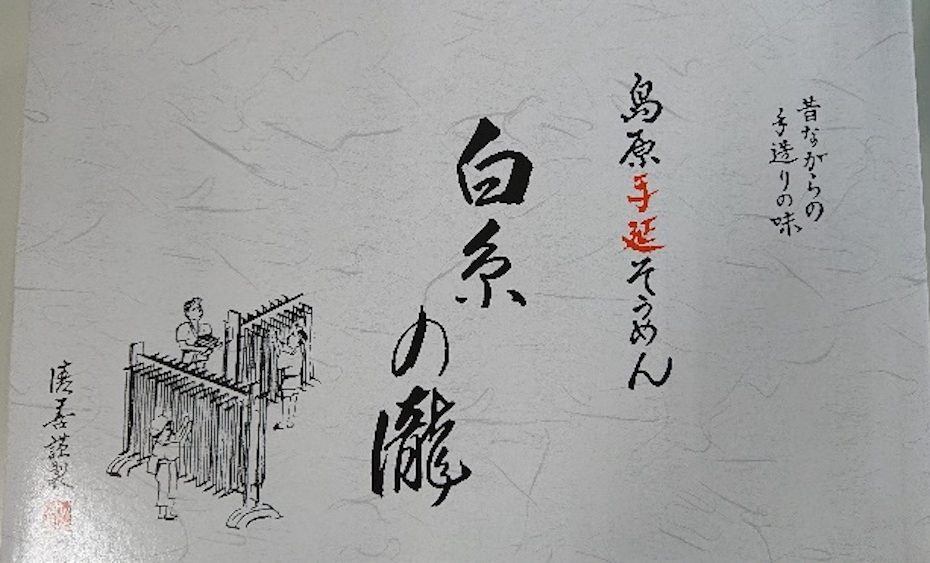 昔ながらの
手造りの味
島原手延そうめん
白糸の瀧
謹製